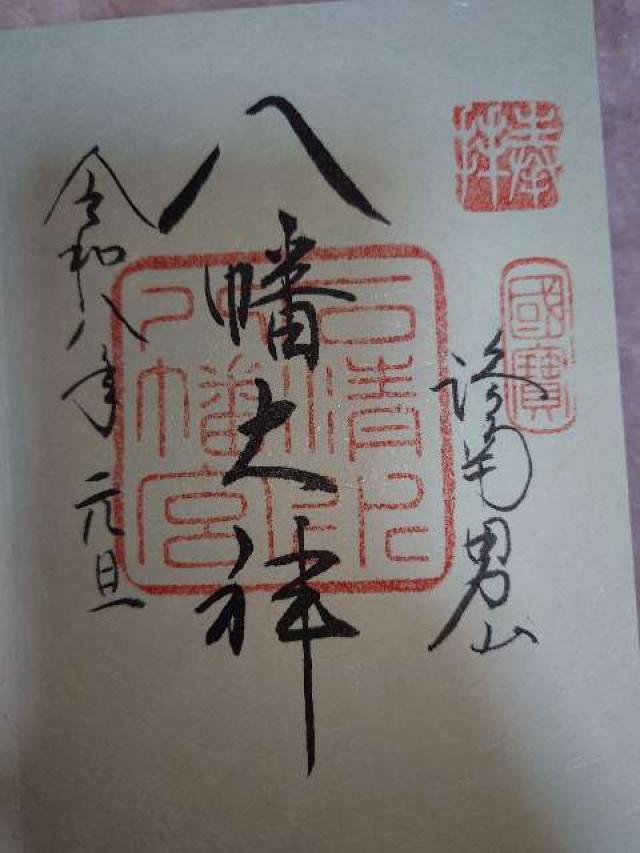 奉拝
國寶
洛南男山
八幡大神
石清水
八幡宮
令和八年元旦